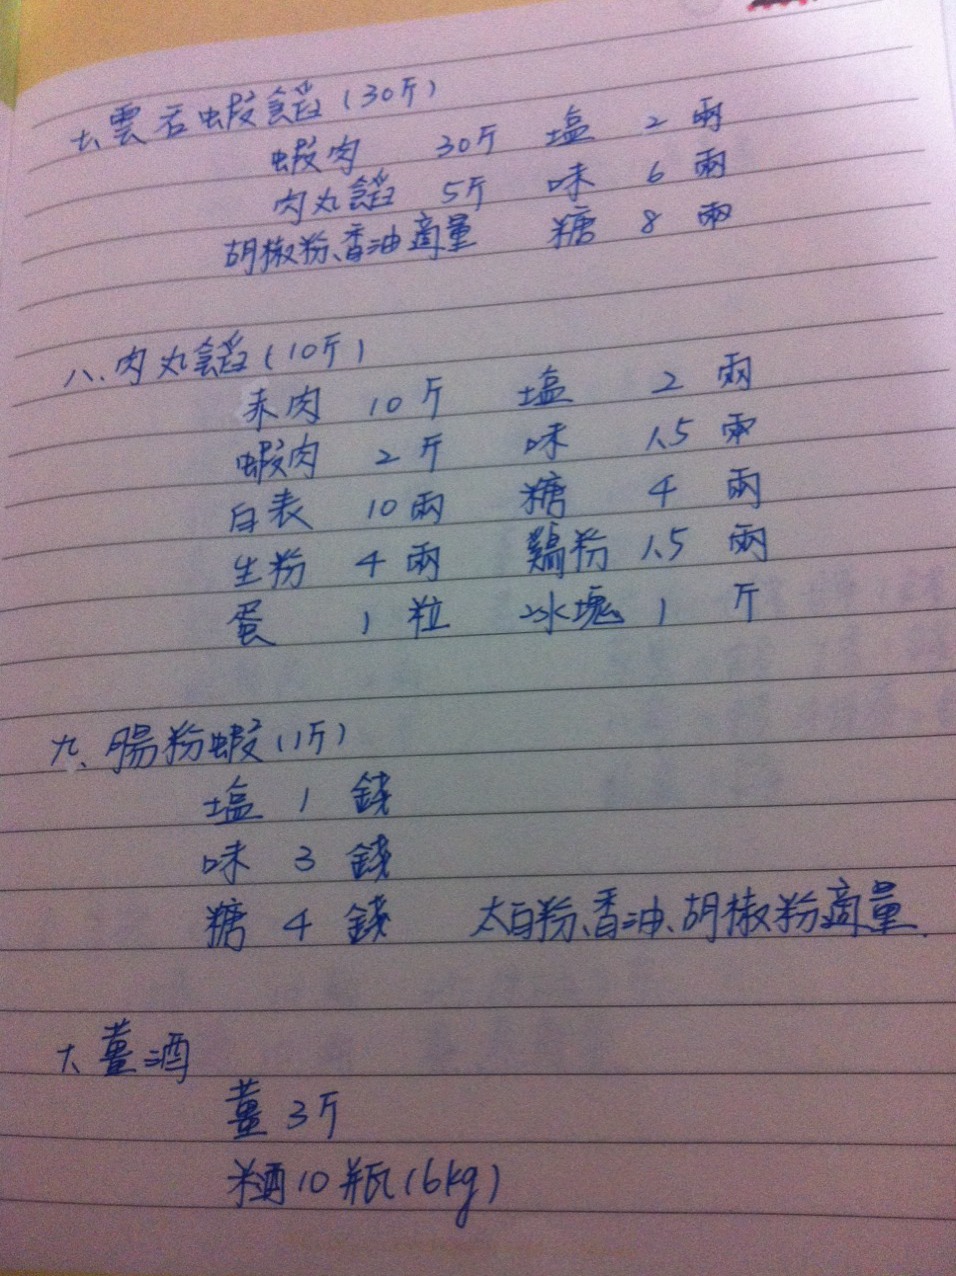 七、雲吞蝦餡(30斤)
蝦肉 30斤 塩 2 兩
肉丸餡 5斤 味 6 兩
胡椒粉、香油適量 糖 8 兩
八、肉丸餡(10斤)
赤肉 10斤 塩 2 兩
蝦肉 2斤 味 1.5 兩
白表 10兩 糖 4 兩
生粉 4兩 鷄粉 1.5 兩
蛋 1 粒 冰塊 1 斤
九、腸粉蝦(1斤)
塩 1 錢
味 3 錢
糖 4 錢 太白粉、香油、胡椒粉適量.
十、薑酒
薑 3斤
米酒10瓶(6kg)